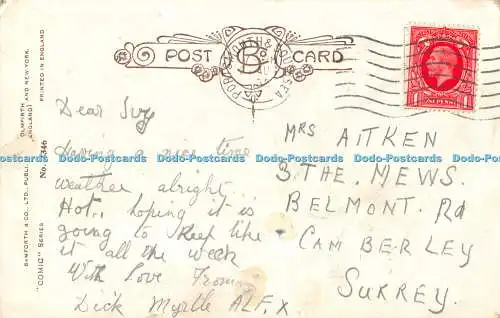 POST CARD
B
Dear Suzy
Having a nice time
weather alright
Hot, hoping it is
going to keep like
it all the week
With love From
Dick Myrtle ALF. X
MRS AITKEN
3. THE. MEWS.
BELMONT. Rd
CAMBERLEY
SURREY.
BAMFORTH & CO., LTD., PUBLI HOLMFIRTH AND NEW YORK.
(ENGLAND)
"COMIC" SERIES No. 346
PRINTED IN ENGLAND
PORTSMOUTH & SOUTHSEA
1 ONE PENNY 1
Dodo-Postcards Dodo-Postcards Dodo-Postcards Dodo-Postcards Dodo-Postcards Dodo-Postcards